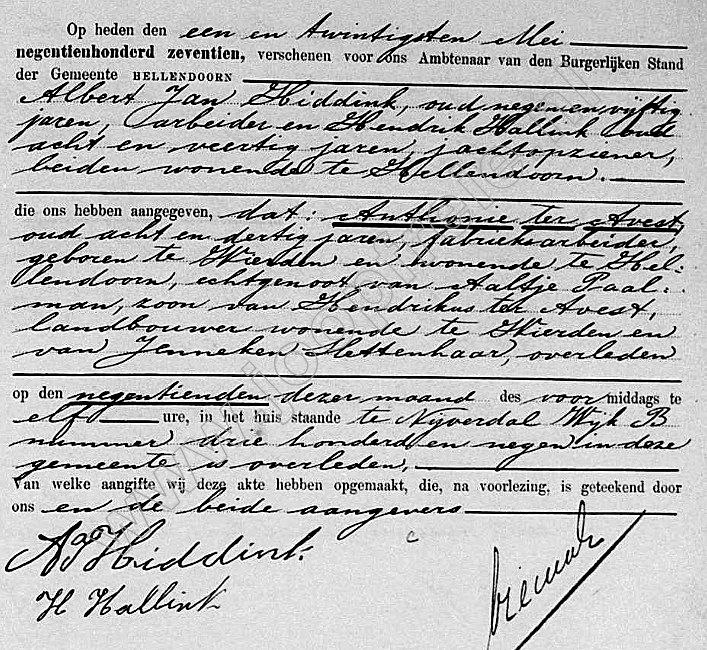 Op heden den een en twintigsten Mei
negentienhonderd zeventien, verschenen voor ons Ambtenaar van den Burgerlijken Stand
der Gemeente HELLENDOORN
Albert Jan Hiddink, oud negen en vijftig
jaren, arbeider en Hendrik Hallink oud
acht en veertig jaren, jachtopziener,
beiden wonende te Hellendoorn.
die ons hebben aangegeven, dat: Anthonie ter Avest,
oud acht en dertig jaren, fabrieksarbeider,
geboren te Wierden en wonende te Hel-
lendoorn, echtgenoot van Aaltje Paal-
man, zoon van Hendrikus ter Avest,
landbouwer wonende te Wierden en
van Jenneken Slettenhaar, overleden
op den negentienden dezer maand des voor middags te
elf ure, in het huis staande te Nijverdal Wijk B
nummer drie honderd en negen in deze
gemeente is overleden,
Van welke aangifte wij deze akte hebben opgemaakt, die, na voorlezing, is geteekend door
ons en de beide aangevers
AJ Hiddink.
H Hallink